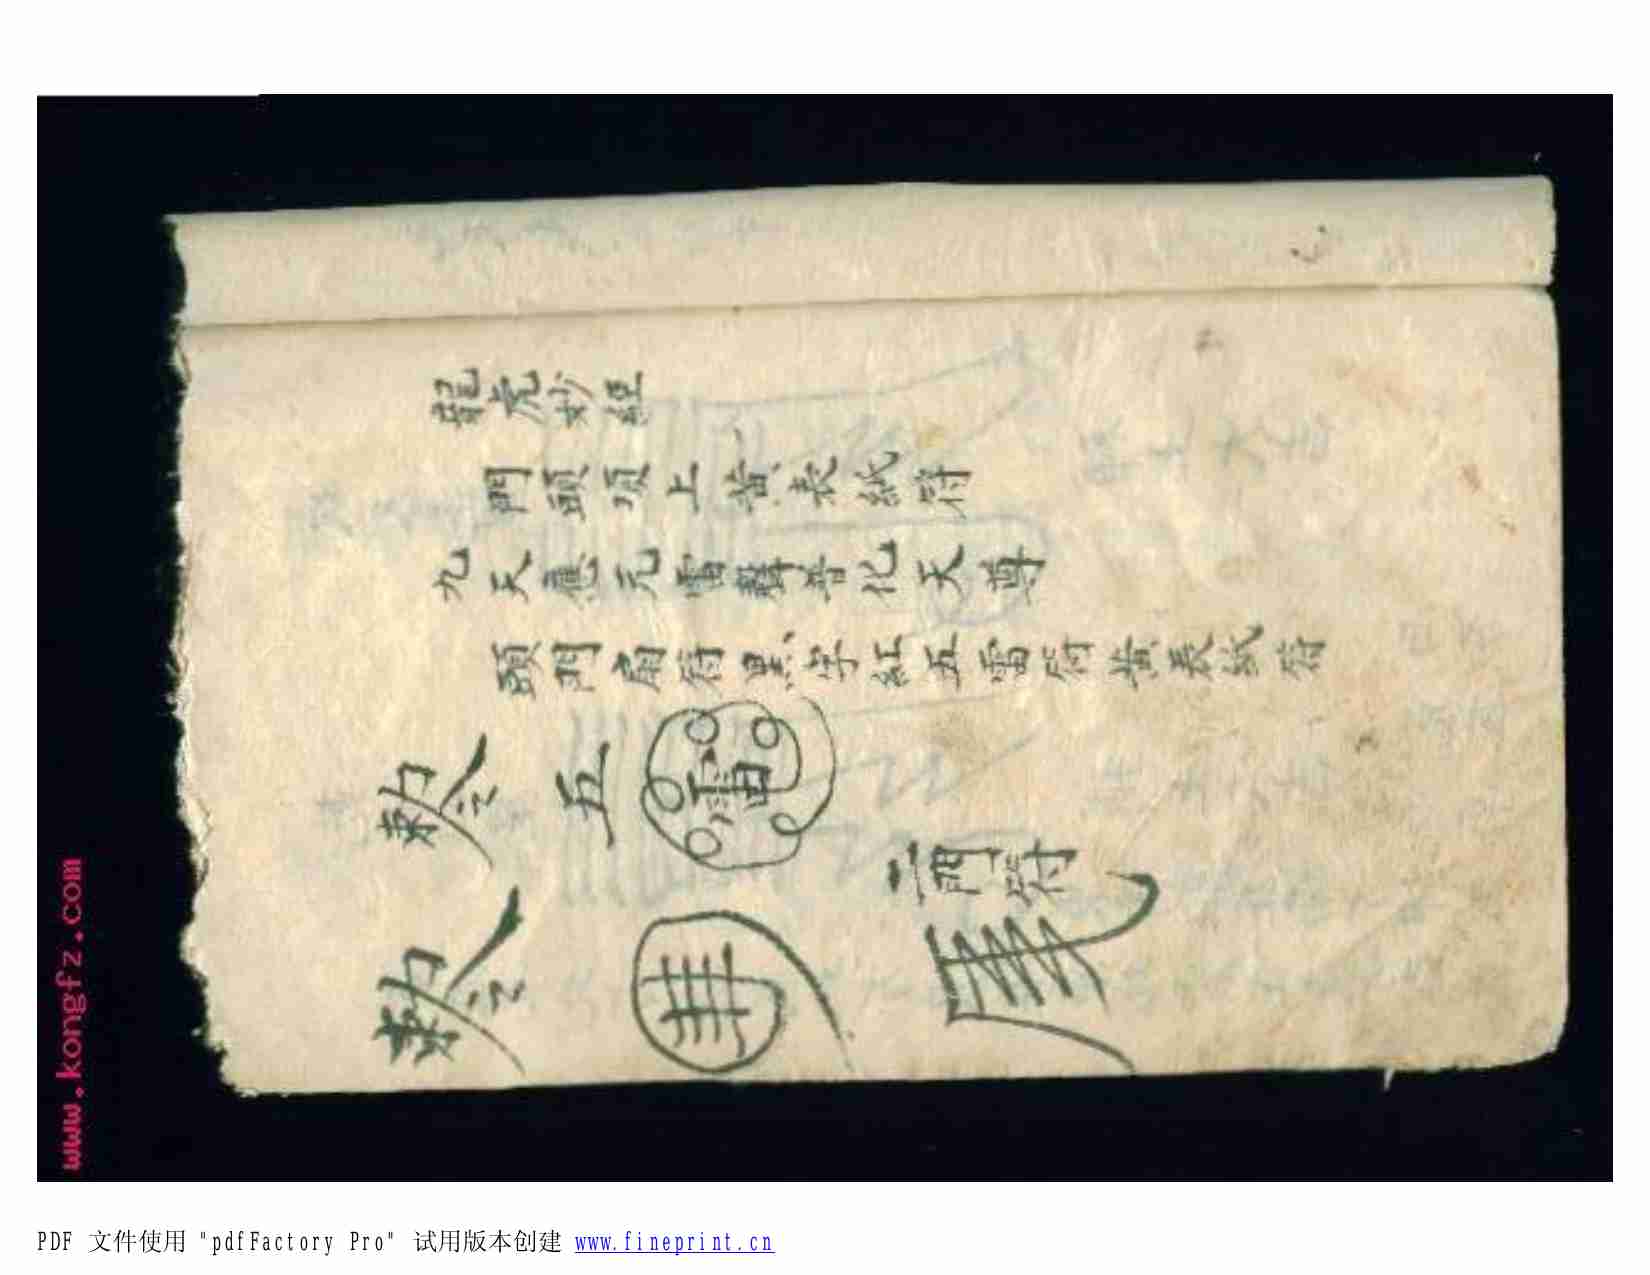 龍虎妙經
門頭項上黄表紙符
九天應元雷聲普化天尊
頭門扇符黑字紅五雷符黄表紙符
勅令五雷
二門符
勅令
www.kongfz.com
PDF 文件使用 "pdfFactory Pro" 试用版本创建 www.fineprint.cn